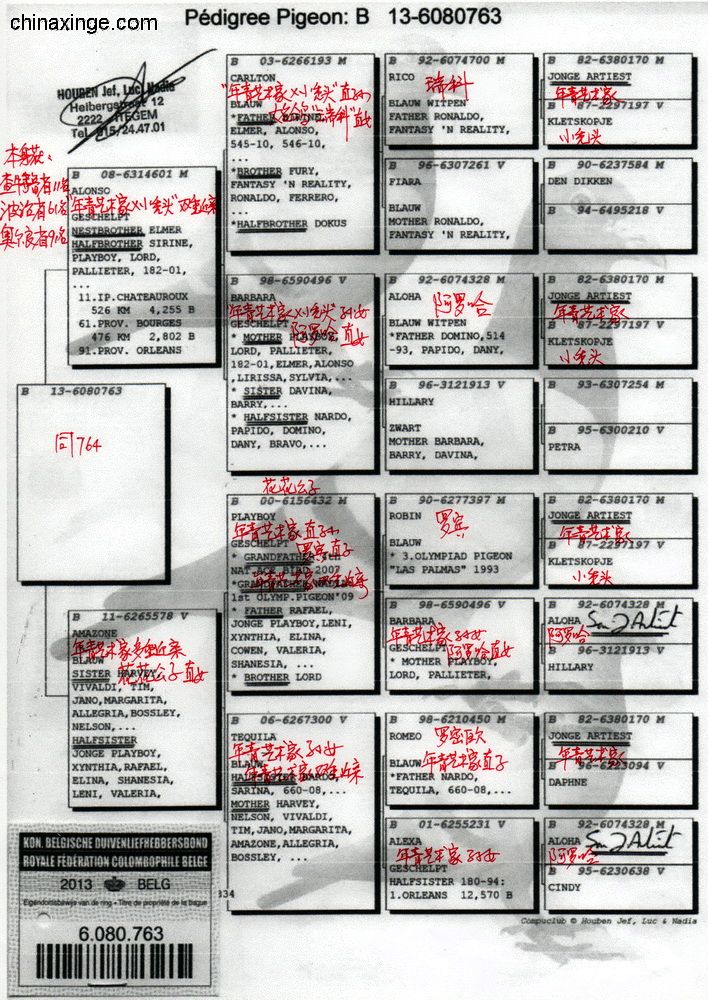 chinaxinge.com
Pédigree Pigeon: B 13-6080763
HOUBEN Jef, Luc, Nadia
Heibergstraat 12
2222 ITEGEM
Tel. 015/24.47.01
B 08-6314601 M
ALONSO
"年青艺术家x小秃头"双重近亲
GESCHELPT
NESTBROTHER ELMER
HALFBROTHER SIRINE,
PLAYBOY, LORD,
PALLIETER, 182-01,
...
11.IP.CHATEAUROUX
526 KM 4,255 B
61.PROV. BOURGES
476 KM 2,802 B
91.PROV. ORLEANS
B 13-6080763
同764
B 11-6265578 V
AMAZONE
年青艺术家多重近亲
BLAUW
花花公子直女
SISTER HARVEY,
VIVALDI, TIM,
JANO,MARGARITA,
ALLEGRIA,BOSSLEY,
NELSON,...
HALFSISTER
JONGE PLAYBOY,
XYNTHIA,RAFAEL,
ELINA, SHANESIA,
LENI, VALERIA,
B 03-6266193 M
CARLTON
BLAUW
*FATHER SIRINE,
ELMER, ALONSO,
545-10, 546-10,
...
*BROTHER FURY,
FANTASY 'N REALITY,
RONALDO, FERRERO,
...
*HALFBROTHER DOKUS
B 98-6590496 V
BARBARA
"年青艺术家x小秃头"孙女
GESCHELPT
阿罗哈直女
* MOTHER PLAYBOY,
LORD, PALLIETER,
182-01,ELMER,ALONSO
,LIRISSA,SYLVIA,...
* SISTER DAVINA,
BARRY,...
* HALFSISTER NARDO,
PAPIDO, DOMINO,
DANY, BRAVO,...
花花公子
B 00-6156432 M
PLAYBOY
GESCHELPT
罗宾直子
* GRANDFATHER 5th
NAT ACE BIRD 2007
1st OLYMP.PIGEON'09
* FATHER RAFAEL,
JONGE PLAYBOY,LENI,
XYNTHIA, ELINA,
COWEN, VALERIA,
SHANESIA, ...
* BROTHER LORD
B 06-6267300 V
TEQUILA
年青艺术家孙女
BLAUW
年青艺术家双重近亲
HALFSISTER NARDO,
SARINA, 660-08,...
MOTHER HARVEY,
NELSON, VIVALDI,
TIM,JANO,MARGARITA,
AMAZONE,ALLEGRIA,
BOSSLEY, ...
B 92-6074700 M
RICO
瑞科
BLAUW WITPEN
FATHER RONALDO,
FANTASY 'N REALITY,
B 96-6307261 V
FIARA
BLAUW
MOTHER RONALDO,
FANTASY 'N REALITY,
B 92-6074328 M
ALOHA
阿罗哈
BLAUW WITPEN
*FATHER DOMINO,514
-93, PAPIDO, DANY,
B 96-3121913 V
HILLARY
ZWART
MOTHER BARBARA,
BARRY, DAVINA,
B 90-6277397 M
ROBIN
罗宾
BLAUW
* 3.OLYMPIAD PIGEON
"LAS PALMAS" 1993
B 98-6590496 V
BARBARA
年青艺术家孙女
GESCHELPT
阿罗哈直女
* MOTHER PLAYBOY,
LORD, PALLIETER,
B 98-6210450 M
ROMEO
罗密欧
BLAUW
年青艺术家直子
*FATHER NARDO,
TEQUILA, 660-08,...
B 01-6255231 V
ALEXA
年青艺术家孙女
GESCHELPT
HALFSISTER 180-94:
1.ORLEANS 12,570 B
B 82-6380170 M
JONGE ARTIEST
年青艺术家
B 87-2297197 V
KLETSKOPJE
小秃头
B 90-6237584 M
DEN DIKKEN
B 94-6495218 V
B 82-6380170 M
JONGE ARTIEST
年青艺术家
B 87-2297197 V
KLETSKOPJE
小秃头
B 93-6307254 M
B 95-6300210 V
PETRA
B 82-6380170 M
JONGE ARTIEST
年青艺术家
B 87-2297197 V
KLETSKOPJE
小秃头
B 92-6074328 M
ALOHA
阿罗哈
B 96-3121913 V
HILLARY
B 82-6380170 M
JONGE ARTIEST
年青艺术家
B 96-6223094 V
DAPHNE
B 92-6074328 M
ALOHA
阿罗哈
B 95-6230638 V
CINDY
Compuclub © Houben Jef, Luc & Nadia
334
KON. BELGISCHE DUIVENLIEFHEBBERSBOND
ROYALE FÉDÉRATION COLOMBOPHILE BELGE
2013 BELG
Eigendomsbewijs van de ring - Titre de propriété de la bague
6.080.763